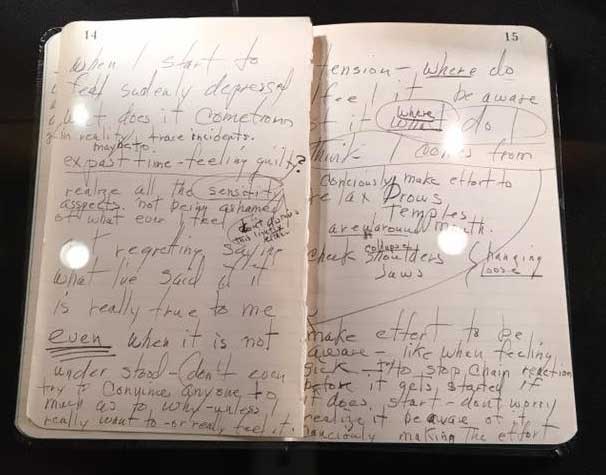 14
When I start to
feel sudenly depressed
what does it come from
in reality) trace incidents.
maybe to
expast time - feeling guilty?
realize all the sensotity
asspects. not being ashamed
of what ever I feel
dont dismiss
this lightly
either
not regreting saying
what I've said if it
is really true to me
even when it is not
under stood - (don't even
try to convince anyone to
much as to why - unless I
really want to - or really feel it.
15
tension - where do
I feel it be aware
it where
what do I
think I comes from
Conciously make effort to
relax Brows
Temples
area around mouth.
collapse
check shoulders
Jaws
hanging
loose
make effort to be
aware - like when feeling
sick - try to stop chain reaction
before it gets started if
it does start - dont worry
realize it be aware of it
conciously making the effort